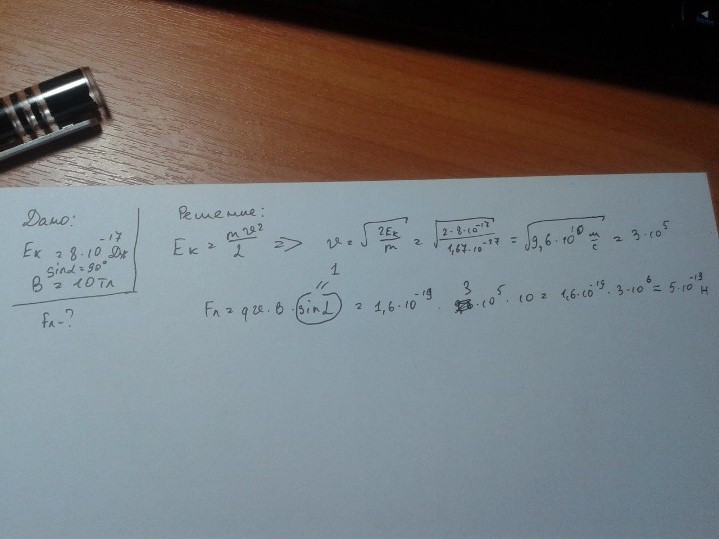 Дано:
Eк = 8·10⁻¹⁷ Дж
sinα = 90°
B = 10 Тл
Fл - ?
Решение:
Eк = mv²/2 => v = √(2Eк/m) = √(2·8·10⁻¹⁷/1,67·10⁻²⁷) = √(9,6·10¹⁰ м/с) = 3·10⁵
1
"
3
Fл = qv·B·sinα = 1,6·10⁻¹⁹ · ·10⁵ · 10 = 1,6·10⁻¹⁹·3·10⁶ = 5·10⁻¹³ Н